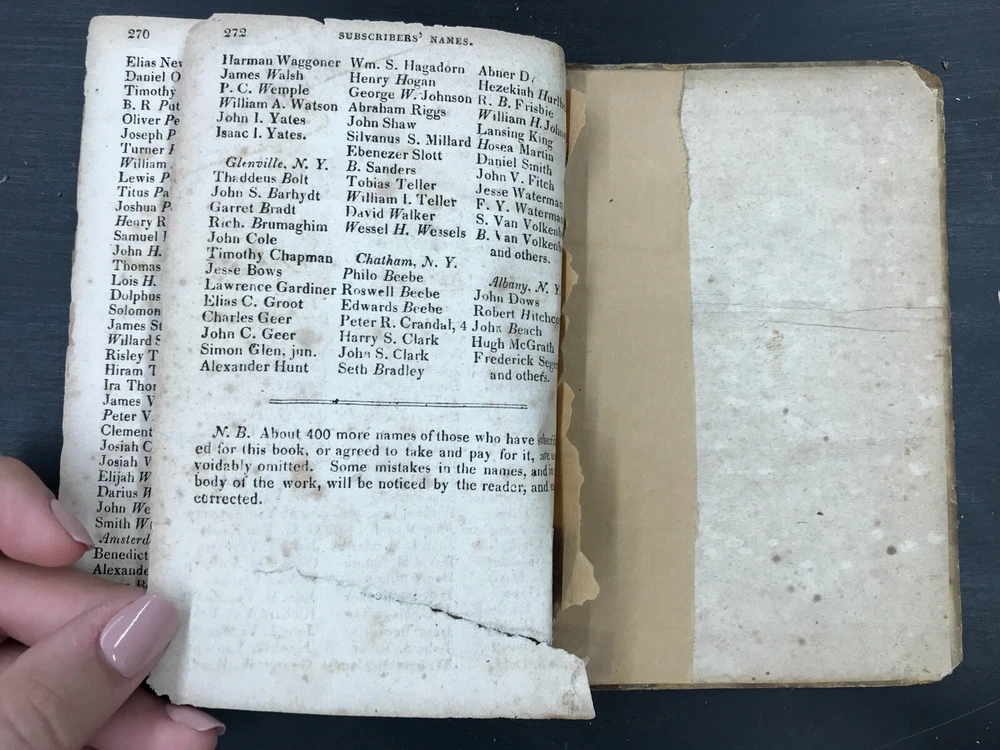 270
Elias
Daniel
Timothy
B. R
Oliver
Joseph
Turner
William
Lewis
Titus
Joshua
Henry
Samuel
John H.
Thomas
Lois H.
Dolphus
Solomon
James
Willard
Risley
Hiram
Ira
James
Peter
Clement
Josiah
Josiah
Elijah
Darius
John
Smith
Benedict
272
SUBSCRIBERS' NAMES.
Harman Waggoner
James Walsh
P. C. Wemple
William A. Watson
John I. Yates
Isaac I. Yates.
Glenville, N. Y.
Thaddeus Bolt
John S. Barhydt
Garret Bradt
Rich. Brumaghim
John Cole
Timothy Chapman
Jesse Bows
Lawrence Gardiner
Elias C. Groot
Charles Geer
John C. Geer
Simon Glen, jun.
Alexander Hunt
Wm. S. Hagadorn
Henry Hogan
George W. Johnson
Abraham Riggs
John Shaw
Silvanus S. Millard
Ebenezer Slott
B. Sanders
Tobias Teller
William I. Teller
David Walker
Wessel H. Wessels
Chatham, N. Y.
Philo Beebe
Roswell Beebe
Edwards Beebe
Peter R. Crandal, 4
Harry S. Clark
John S. Clark
Seth Bradley
Abner
Hezekiah
R. B. Frisbie
William H.
Lansing King
Hosea Martin
Daniel Smith
John V. Fitch
Jesse Waterman
F. Y. Waterman
S. Van
B. Van
and others.
Albany, N. Y.
John Dows
Robert
John Beach
Hugh McGrath
Frederick
and others.
N. B. About 400 more names of those who have
ed for this book, or agreed to take and pay for it, are
voidably omitted. Some mistakes in the names, and in
body of the work, will be noticed by the reader, and
corrected.